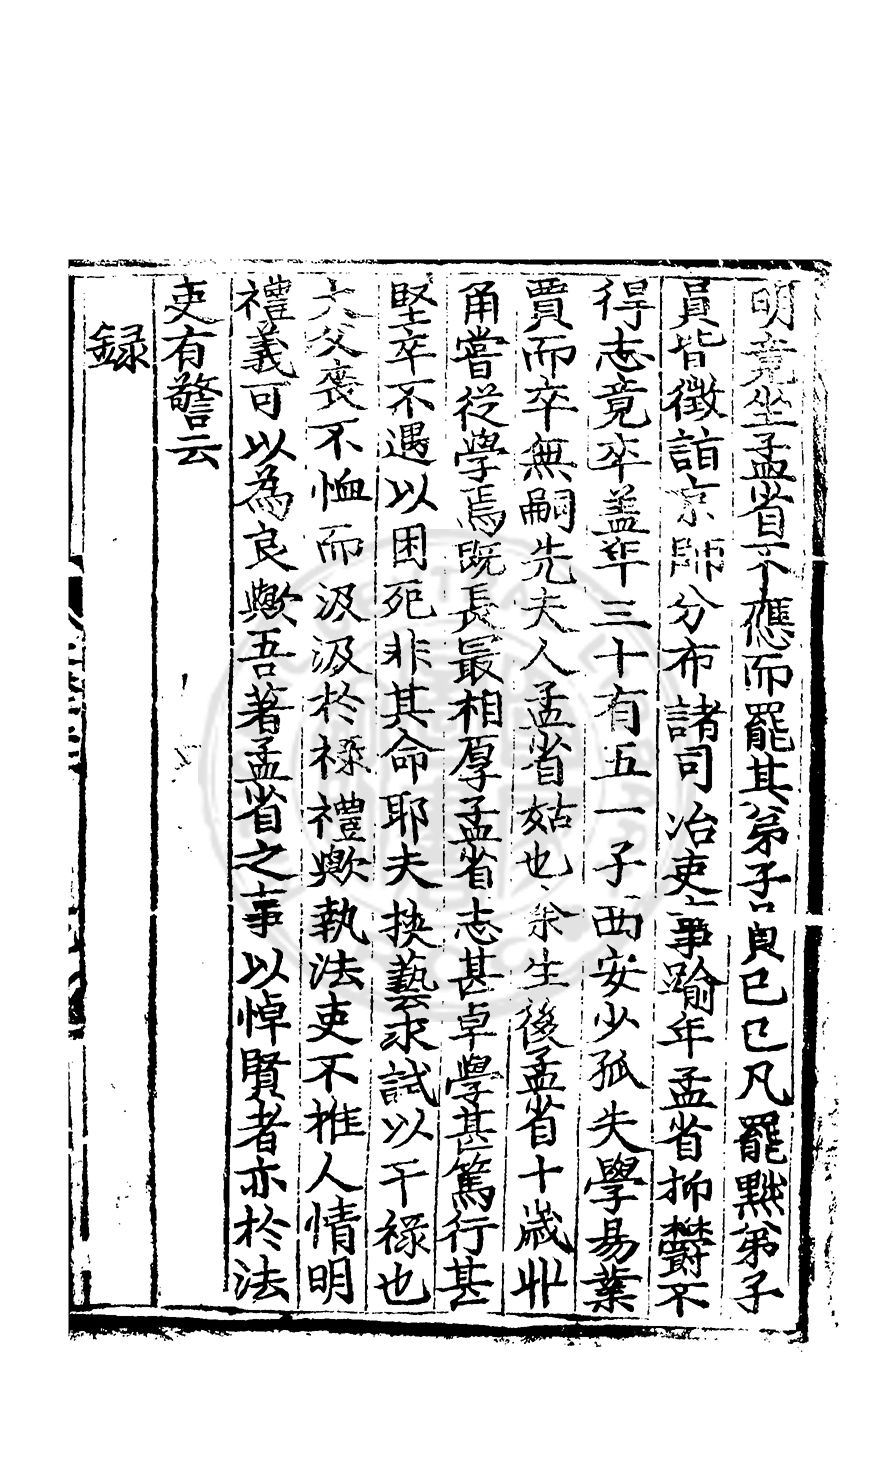 明竟坐孟省不應而罷其弟子員已巳凡罷黜弟子
員皆徵詣京師分布諸司冶吏事踰年孟省抑鬱不
得志竟卒蓋年三十有五一子西安少孤失學易業
賈而卒無嗣先夫人孟省姑也余生後孟省十歲丱
角嘗從學焉既長最相厚孟省志甚卓學甚篤行甚
堅卒不遇以困死非其命耶夫挾藝求試以干祿也
大父喪不恤而汲汲於祿禮歟執法吏不推人情明
禮義可以為良歟吾著孟省之事以悼賢者亦於法
吏有警云
録